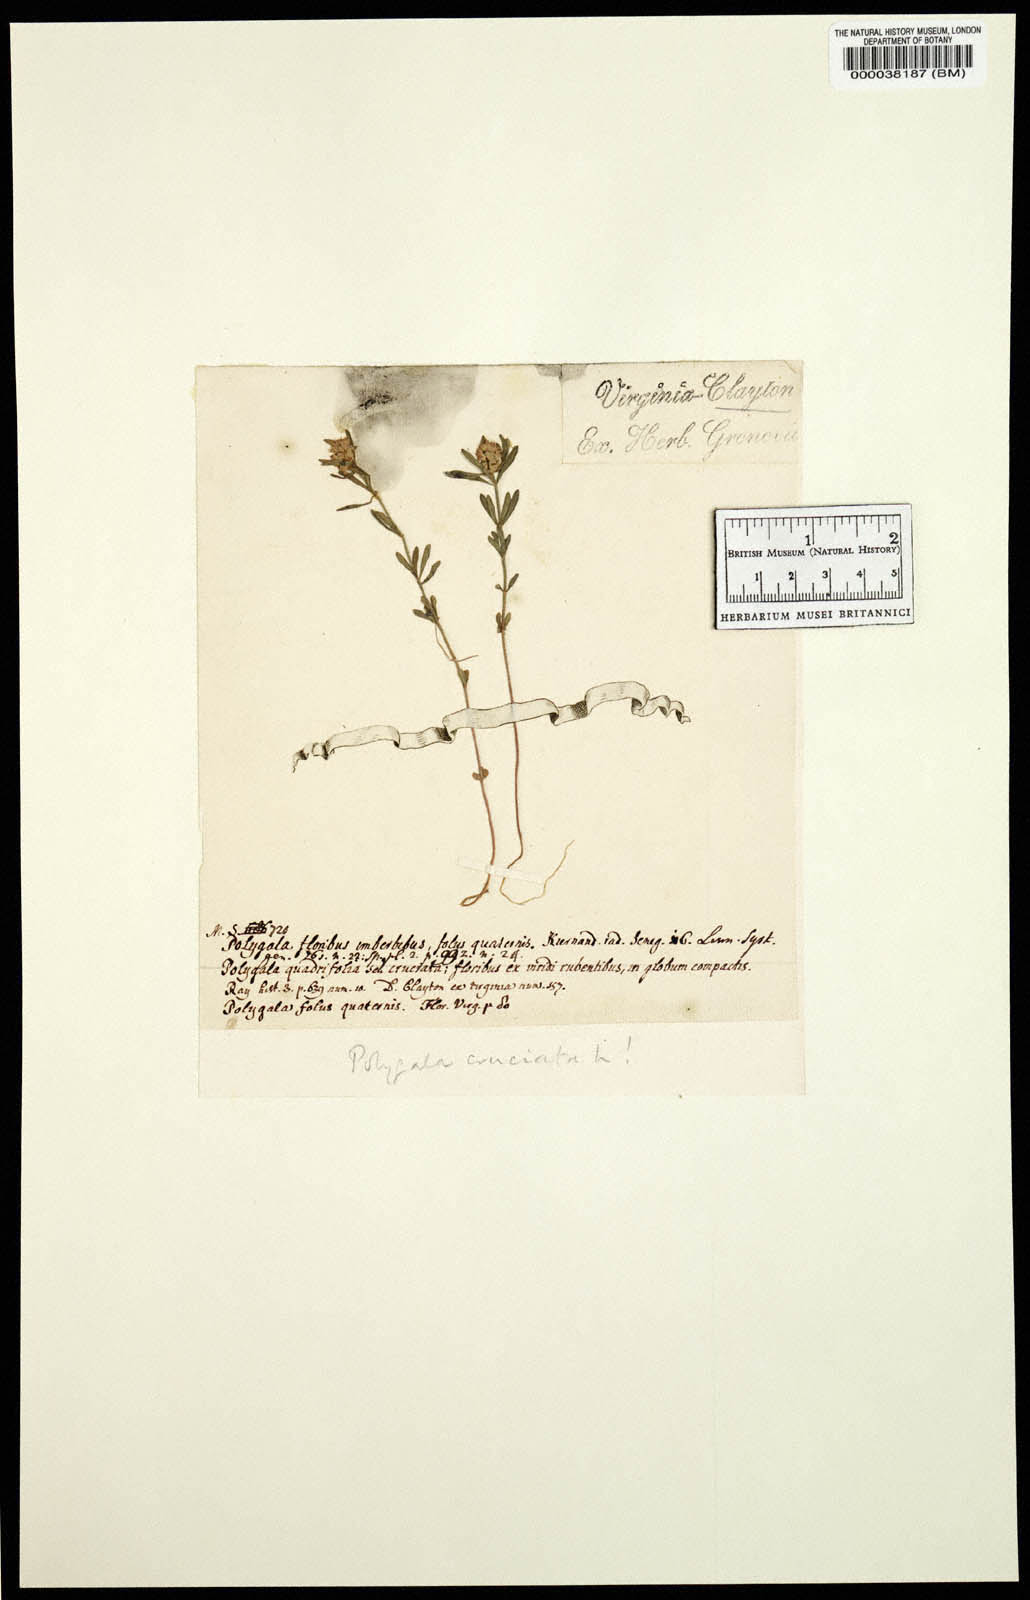 THE NATURAL HISTORY MUSEUM, LONDON
DEPARTMENT OF BOTANY
000038187 (BM)
Virginia Clayton
Ex. Herb. Gronovii
1 2
BRITISH MUSEUM (NATURAL HISTORY)
1 2 3 4 5
HERBARIUM MUSEI BRITANNICI
720
Polygala floribus imberbibus, folijs quaternis. Kiernand. rad. Seneg. Linn. Syst.
gen. 761. n. 22. Sp. pl. 2. p. 992. n. 24.
Polygala quadrifolia sel cruciata; floribus ex viridi rubentibus, in globum compactis.
Ray hist. 3. p. 639 num. 10. D. Clayton ex virginia num. 157.
Polygala folijs quaternis. Flor. Virg. p 80
Polygala cruciata L!